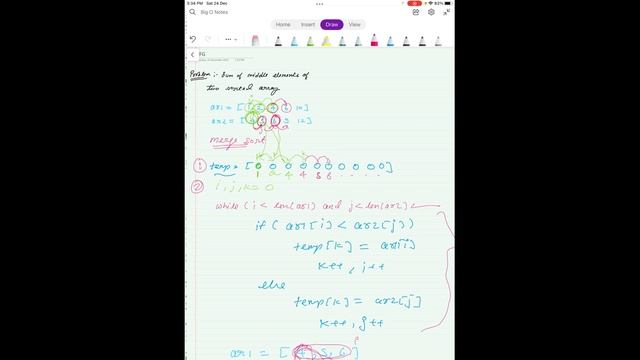 3:34 PM Sat 24 Dec
92%
Big O Notes
Home Insert Draw View
FG
Problem :- Sum of middle elements of
two sorted array
ar1 = [1, 2, 4, 6, 10]
ar2 = [4, 5, 6, 9, 12]
merge sort
① temp = [0 0 0 0 0 0 0 0 0 0]
1 2 4 4 5 6 . . . .
② i, j, k = 0
while (i < len(ar1) and j < len(ar2)
if (ar1[i] < ar2[j])
temp[k] = ar1[i]
k++, i++
else
temp[k] = ar2[j]
k++, j++
ar1 = [4, 5, 6]